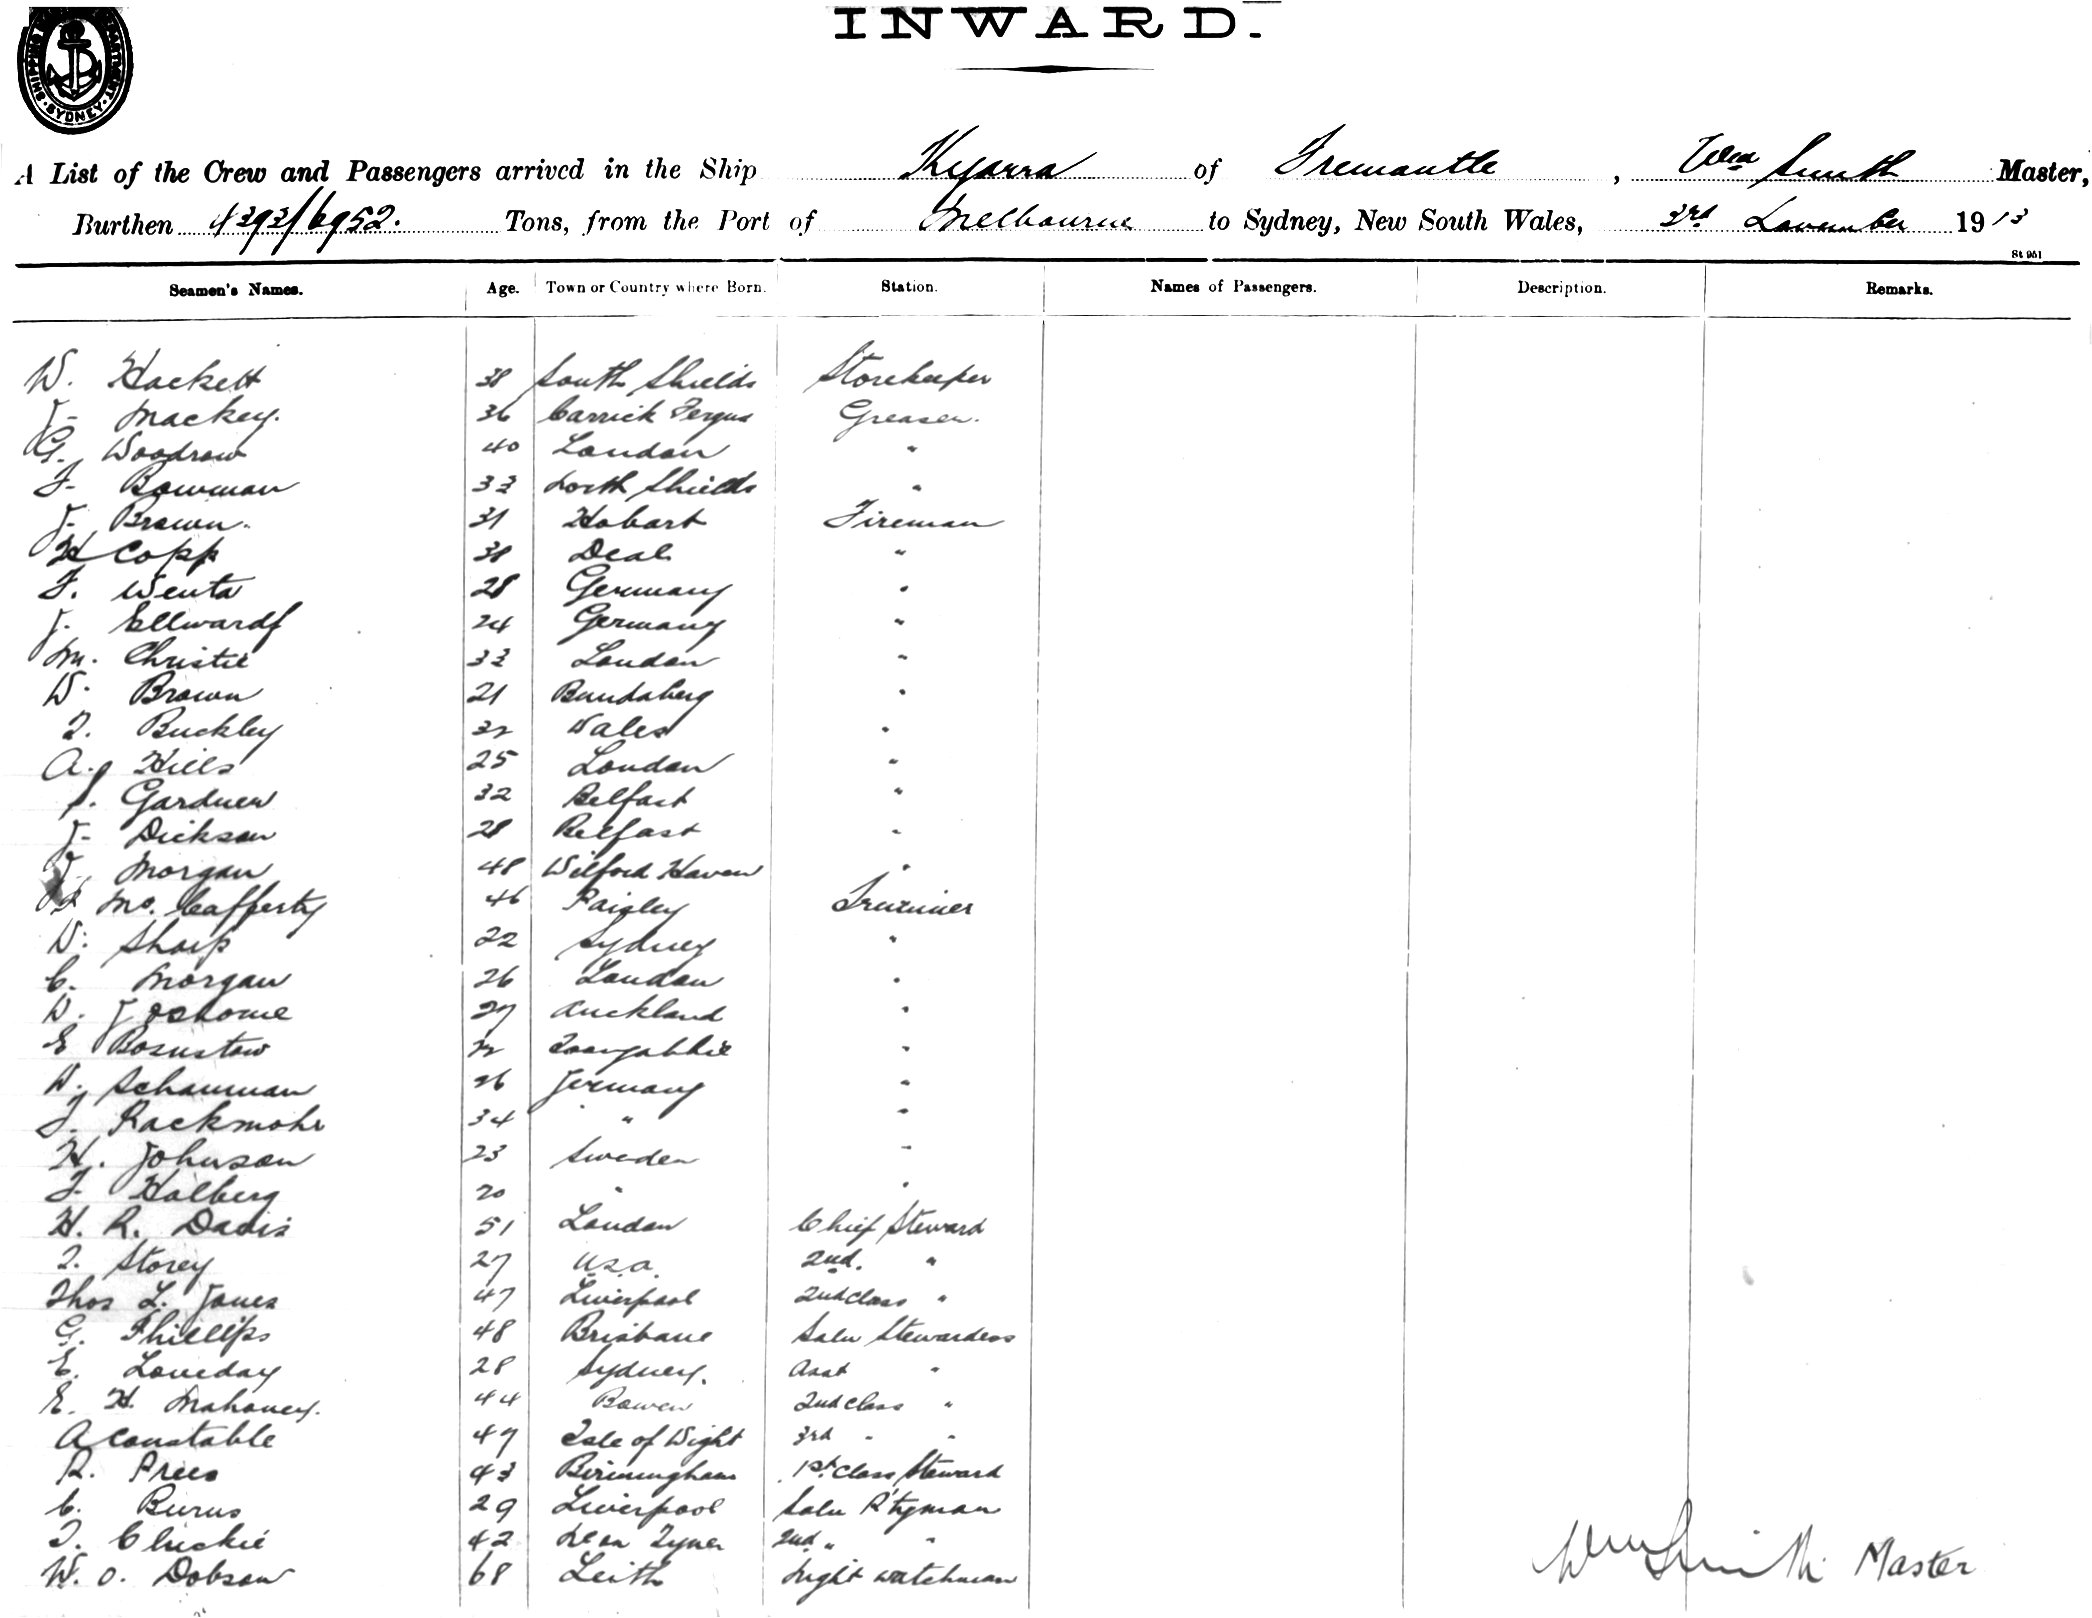 INWARD.
SHIPPING DEPARTMENT · SYDNEY ·
A List of the Crew and Passengers arrived in the Ship Kyarra of Fremantle, Wm Smith Master,
Burthen 4393/6952. Tons, from the Port of Melbourne to Sydney, New South Wales, 3rd November 1913
St 951
Seamen's Names. Age. Town or Country where Born. Station. Names of Passengers. Description. Remarks.
W. Hackett 38 South Shields Storekeeper
J. Mackey. 36 Carrick Fergus Greaser.
G. Woodrow 40 London "
F. Bowman 33 North Shields "
J. Brown. 31 Hobart Fireman
H Copp 38 Deal "
F. Wenta 28 Germany "
J. Ellwardf 24 Germany "
M. Christie 33 London "
W. Brown 21 Bundaberg "
T. Buckley 32 Wales "
A. Hills 25 London "
J. Gardner 32 Belfast "
J. Dickson 28 Belfast "
J. Morgan 48 Milford Haven "
Mc. Cafferty 46 Paisley Trimmer
W. Sharp 22 Sydney "
C. Morgan 26 London "
W. J Osborne 27 Auckland "
E Bosustow 32 Toongabbie "
W. Schauman 26 Germany "
J. Rackmohr 34 " "
H. Johnson 23 Sweden "
F. Halberg 20 " "
H. R. Davis 51 London Chief Steward
T. Storey 27 U.S.A. 2nd. "
Thos L. Jones 47 Liverpool 2nd Class "
G. Phillips 48 Brisbane Saln Stewardess
E. Loveday 28 Sydney. Asst "
E. H. Mahoney. 44 Bowen 2nd Class "
A Constable 47 Isle of Wight 3rd " "
R. Prees 43 Birmingham 1st Class Steward
C. Burns 29 Liverpool Saln P'tryman
T. Chickie 42 N. on Tyne 2nd " "
W. O. Dobson 68 Leith Night watchman
Wm Smith Master